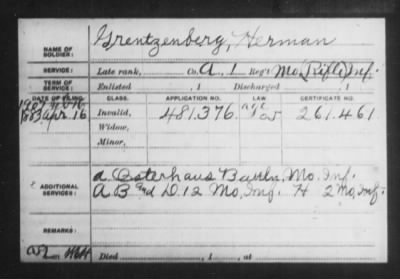 NAME OF SOLDIER: Grentzenberg, Herman
SERVICE: Late rank, Co. A, 1 Reg't Mo. (Rifle) Inf.
TERM OF SERVICE: Enlisted , 1 Discharged , 1
DATE OF FILING. CLASS. APPLICATION NO. LAW CERTIFICATE NO.
1883 Apr. 16 Invalid, 481.376 261.461
Widow,
Minor,
ADDITIONAL SERVICES: a. Osterhaus Battln, Mo. Inf.
A B and D. 12 Mo. Inf. H 2 Mo. Inf.
REMARKS:
Died , 1 , at